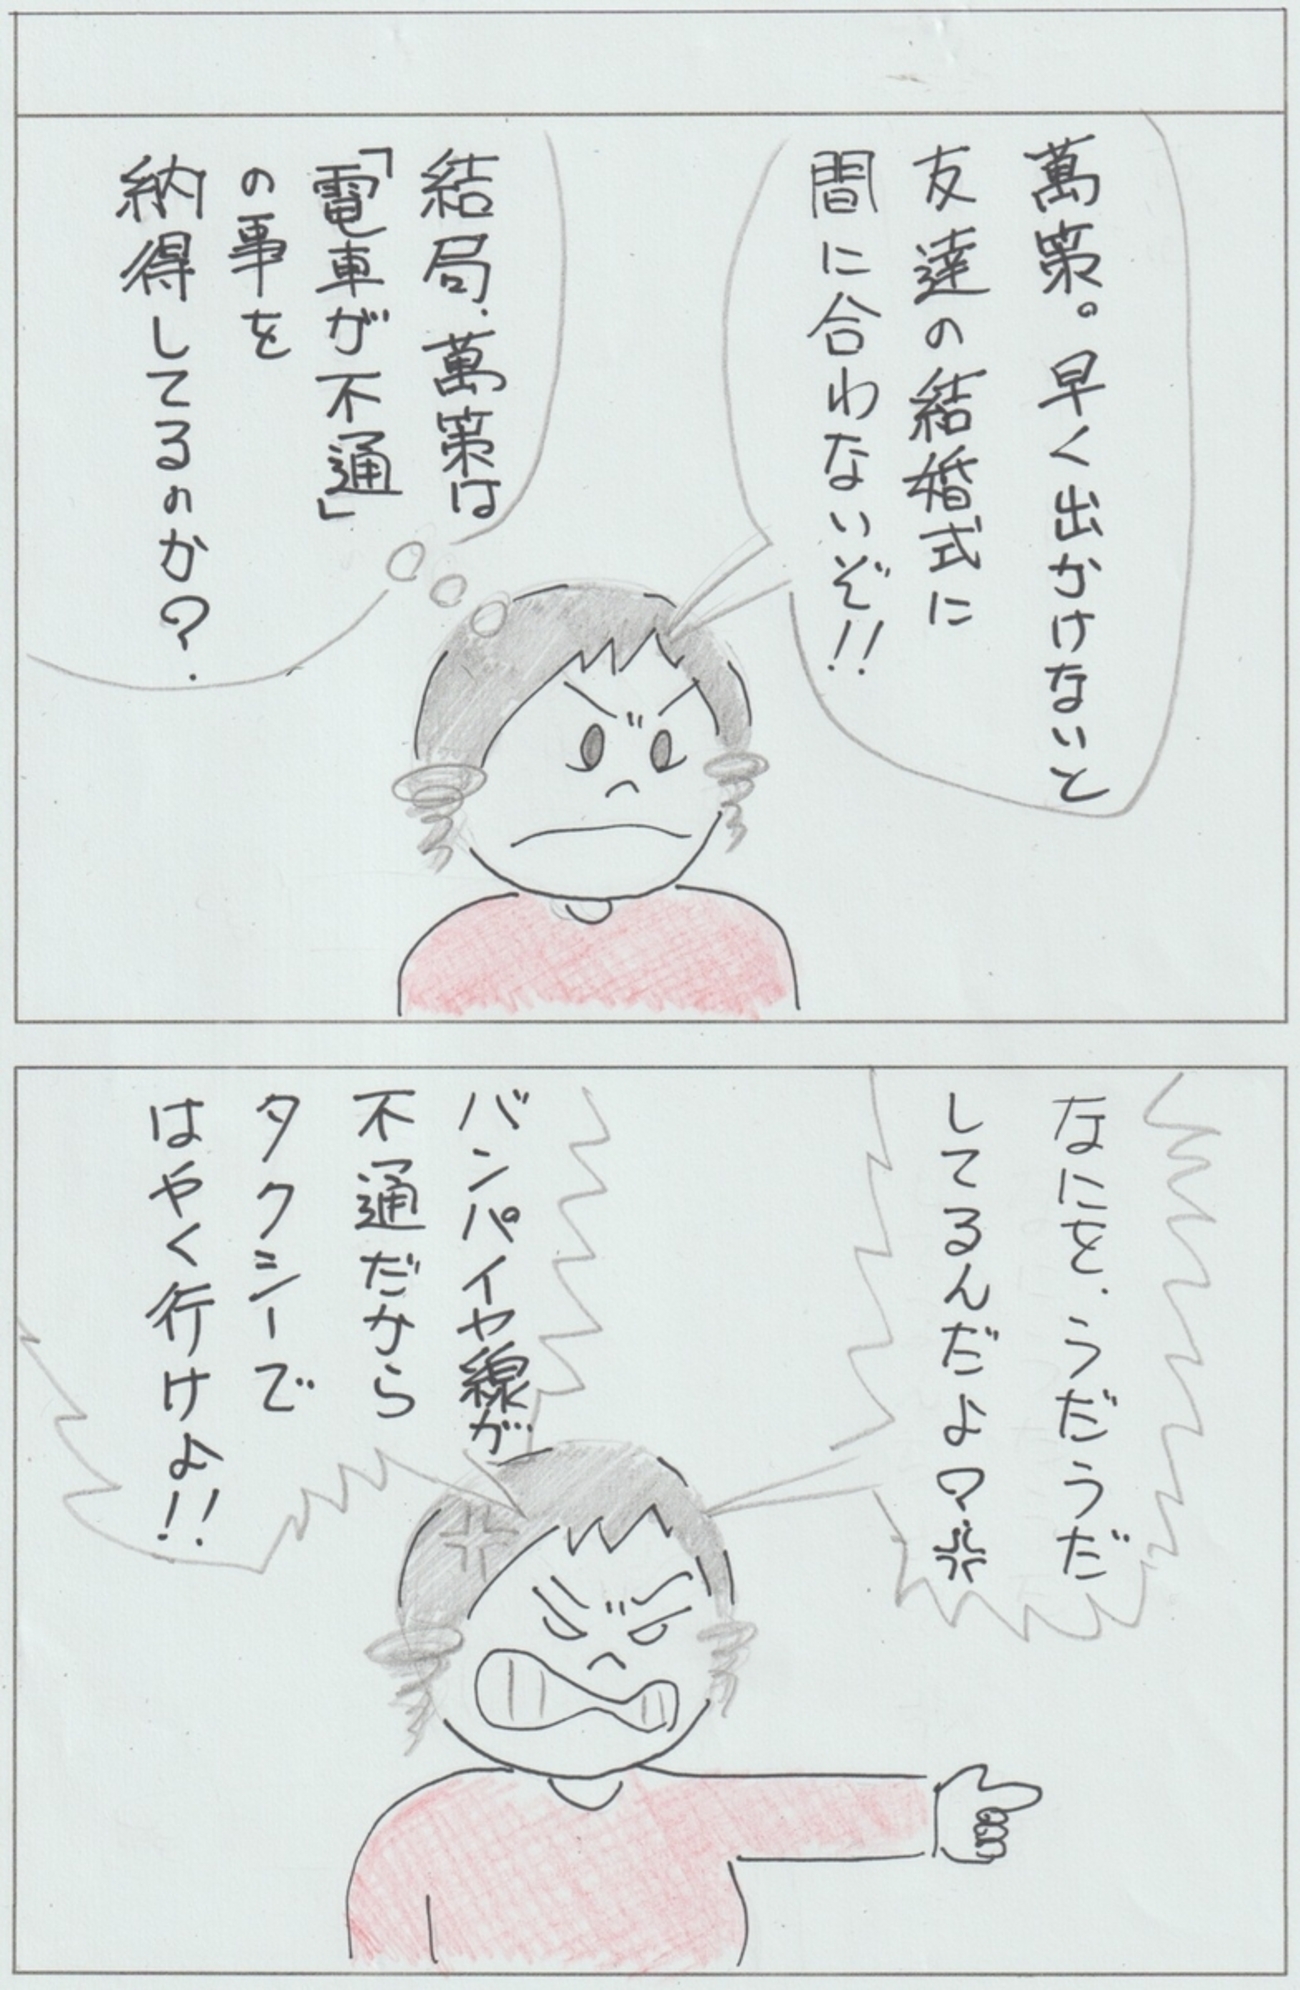 萬策。早く出かけないと
友達の結婚式に
間に合わないぞ!!
結局、萬策は
「電車が不通」
の事を
納得してるのか?
なにを、うだうだ
してるんだよ?
バンパイヤ線が
不通だから
タクシーで
はやく行けよ!!